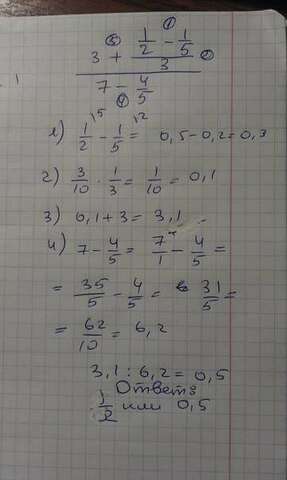 1
1/2 - 1/5
3 + 3
7 - 4/5
1) 1/2 - 1/5 = 0,5 - 0,2 = 0,3
2) 3/10 · 1/3 = 1/10 = 0,1
3) 0,1 + 3 = 3,1
4) 7 - 4/5 = 7/1 - 4/5 =
= 35/5 - 4/5 = 31/5 =
= 62/10 = 6,2
3,1 : 6,2 = 0,5
Ответ:
1/2 или 0,5